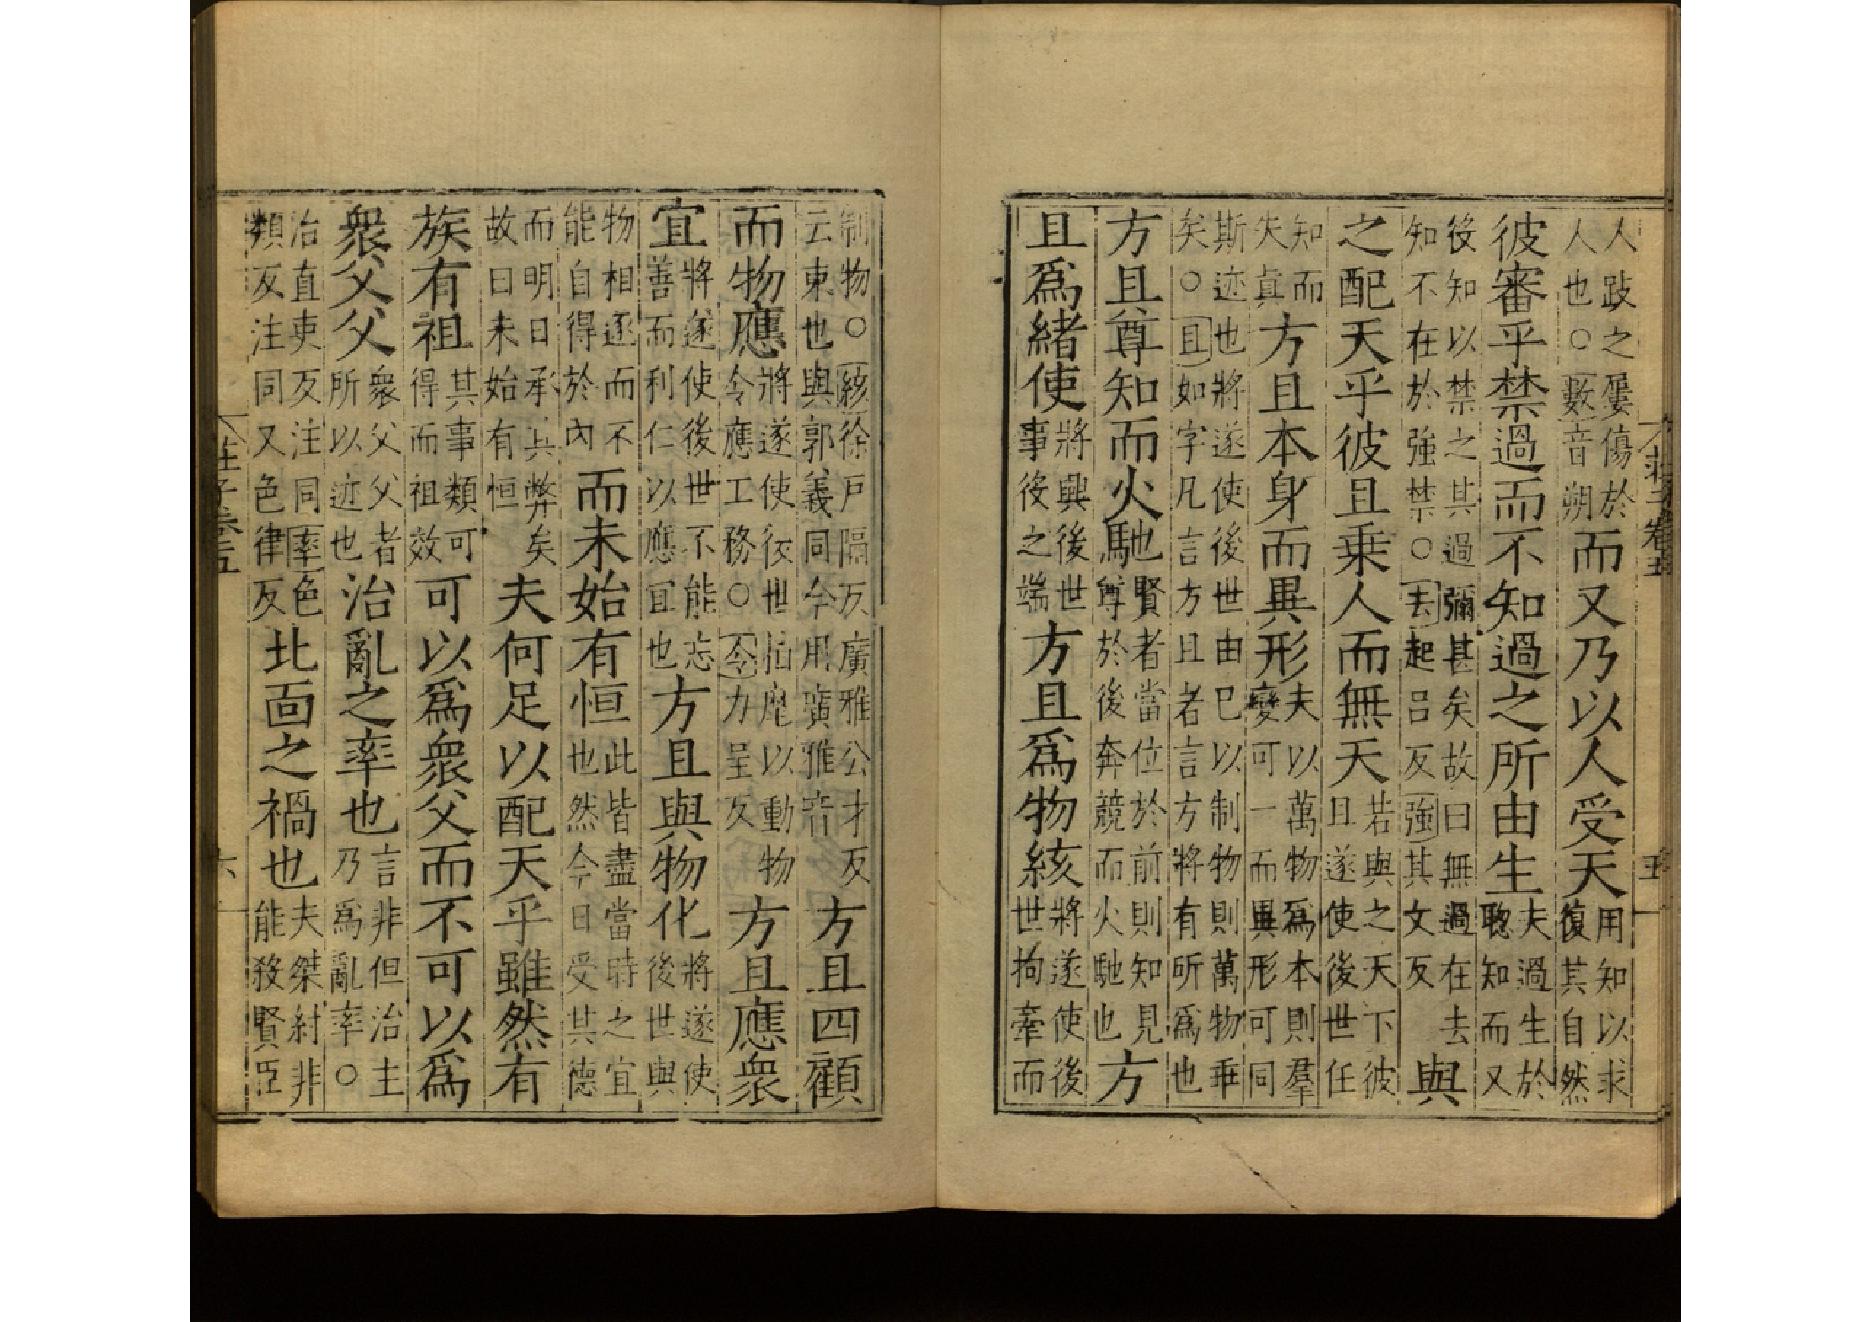 莊子卷五 五
人跂之屢傷於人也○數音朔而又乃以人受天用知以求復其自然
彼審乎禁過而不知過之所由生夫過生於聰知而又
役知以禁之其過彌甚矣故曰無過在去知不在於強禁○去起呂反強其丈反與
之配天乎彼且乘人而無天若與之天下彼且遂使後世任
知而失真方且本身而異形夫以萬物爲本則羣變可一而異形可同
斯迹也將遂使後世由己以制物則萬物乖矣○且如字凡言方且者言方將有所爲也
方且尊知而火馳賢者當位於前則知見尊於後奔競而火馳也方
且爲緒使將興後世事役之端方且爲物絯將遂使後世拘牽而
制物○絯徐戶隔反廣雅公才反云束也與郭義同今用廣雅音方且四顧
而物應將遂使後世指麾以動物令應工務○令力呈反方且應衆
宜將遂使後世不能忘善而利仁以應宜也方且與物化將遂使後世與
物相逐而不能自得於內而未始有恒此皆盡當時之宜也然今日受其德
而明日承其弊矣故曰未始有恒夫何足以配天乎雖然有
族有祖其事類可得而祖效可以爲衆父而不可以爲
衆父父衆父父者所以迹也治亂之率也言非但治主乃爲亂率○
治直吏反注同率色類反注同又色律反北面之禍也夫桀紂非能殺賢臣
莊子卷五 六